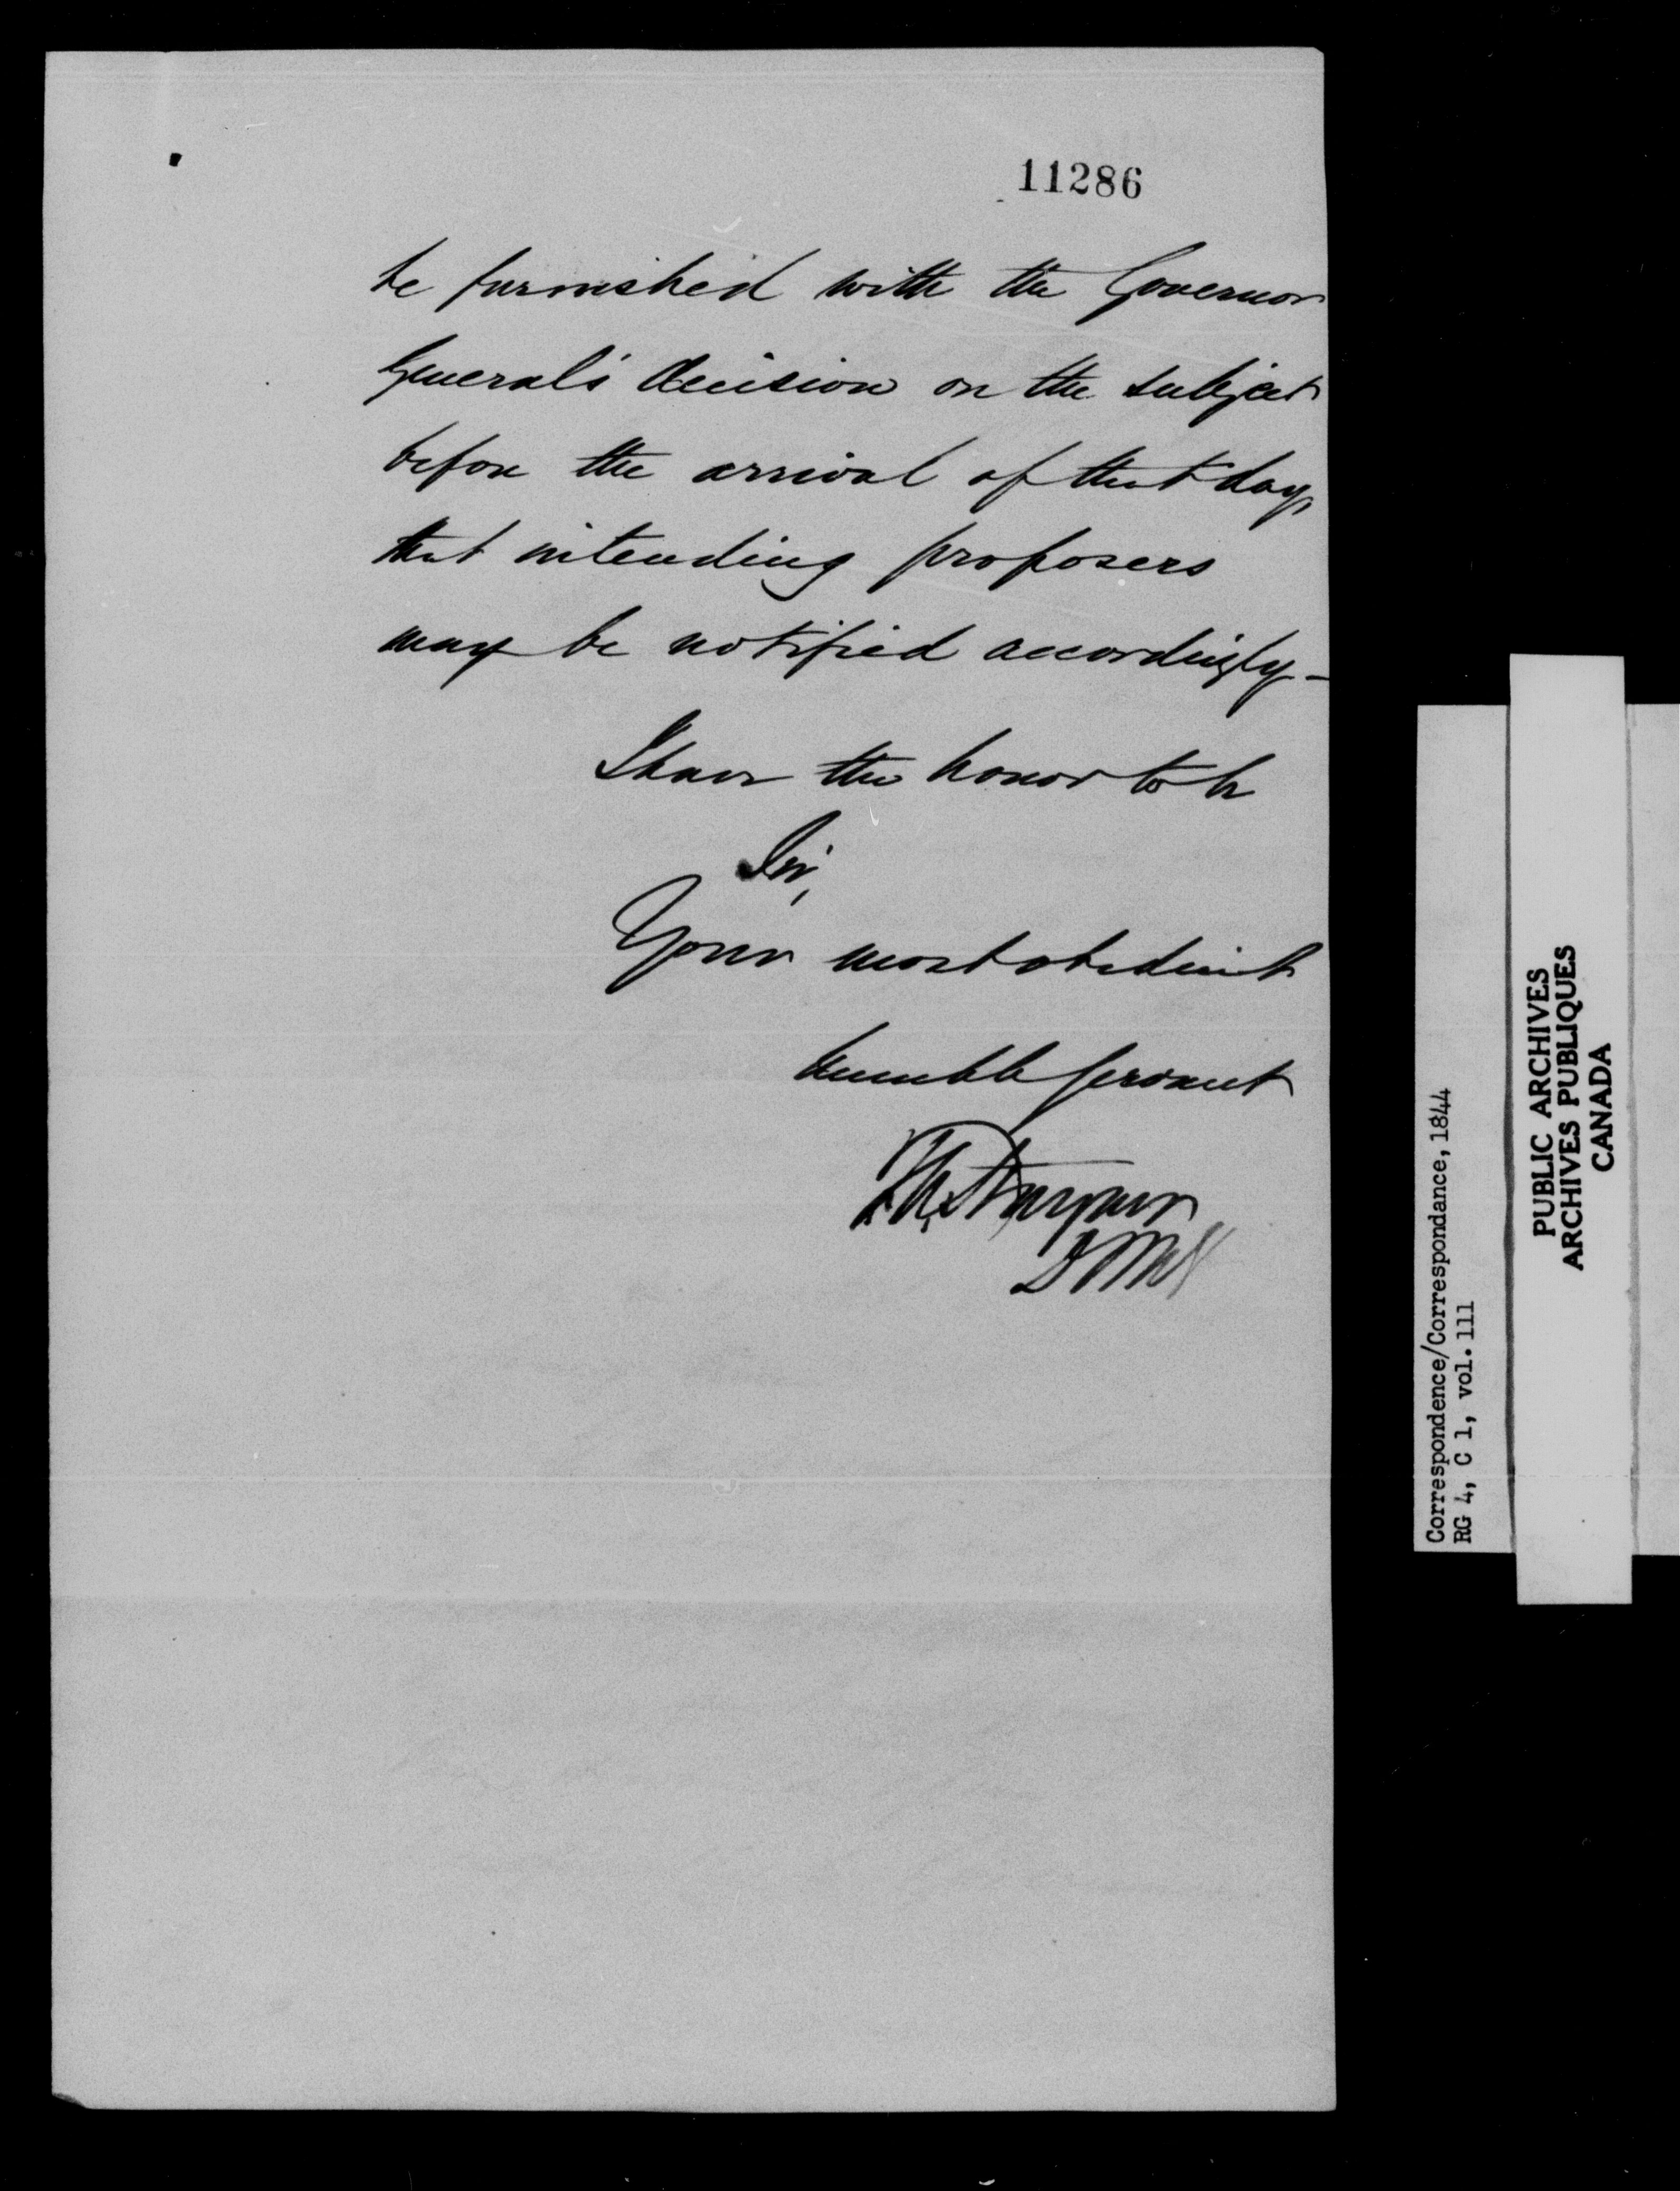 11286
be furnished with the Governor
General's decision on the subject
before the arrival of that day,
that intending proposers
may be notified accordingly -
I have the honor to be
Sir,
Your most obedient
humble servant
Correspondence/Correspondance, 1844
RG 4, C 1, vol. 111
PUBLIC ARCHIVES
ARCHIVES PUBLIQUES
CANADA